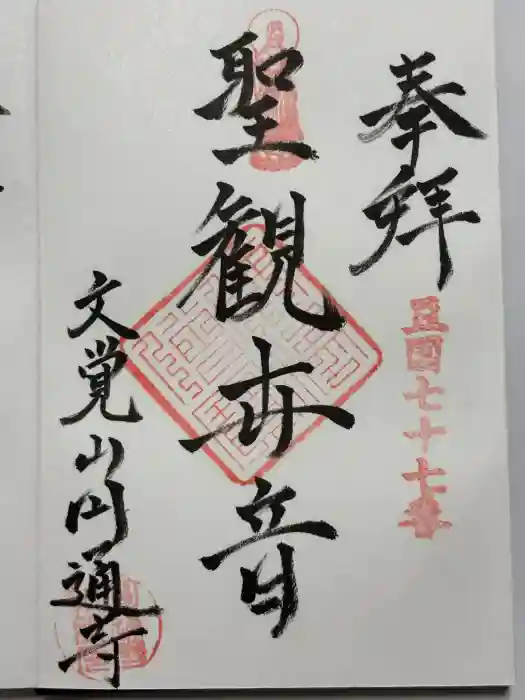 奉拝
五國七十七番
聖観世音
文覚山円通寺